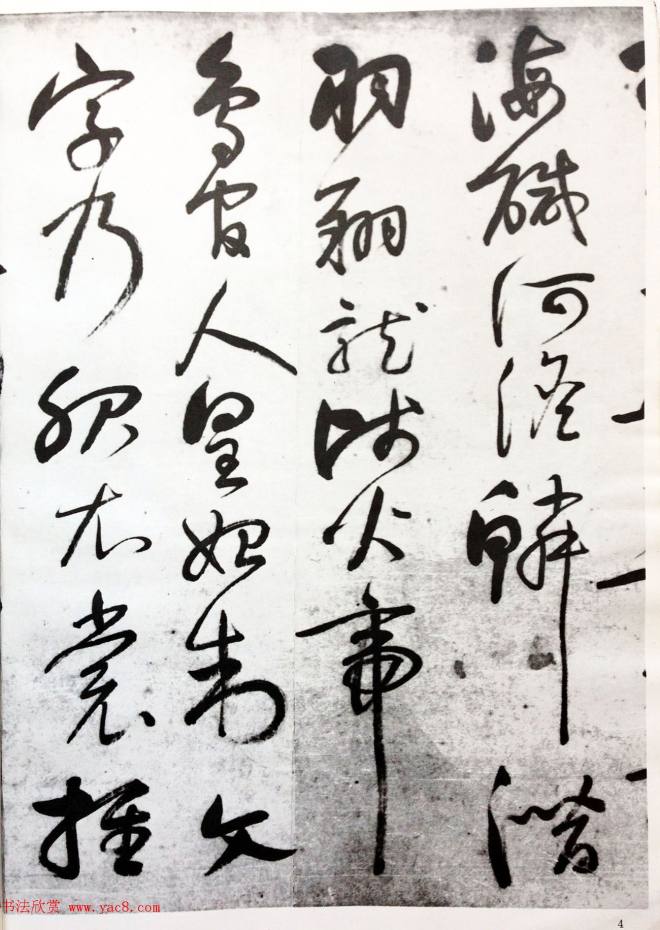 海鹹河淡鱗潛
羽翔龍師火帝
鳥官人皇始制文
字乃服衣裳推
书法欣赏 www.yac8.com
4